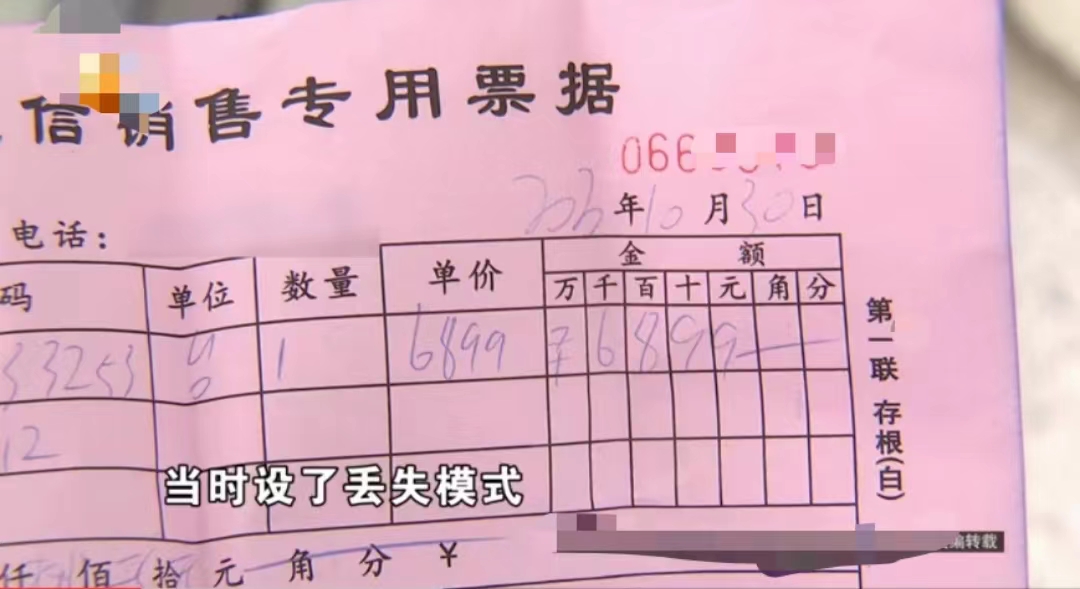 信销售专用票据
066
年10月30日
电话:
码 单位 数量 单价 金额
万 千 百 十 元 角 分
33253 1 6899 ¥6899
12
第一联 存根(白)
当时设了丢失模式
仟 佰 拾 元 角 分 ¥
转载